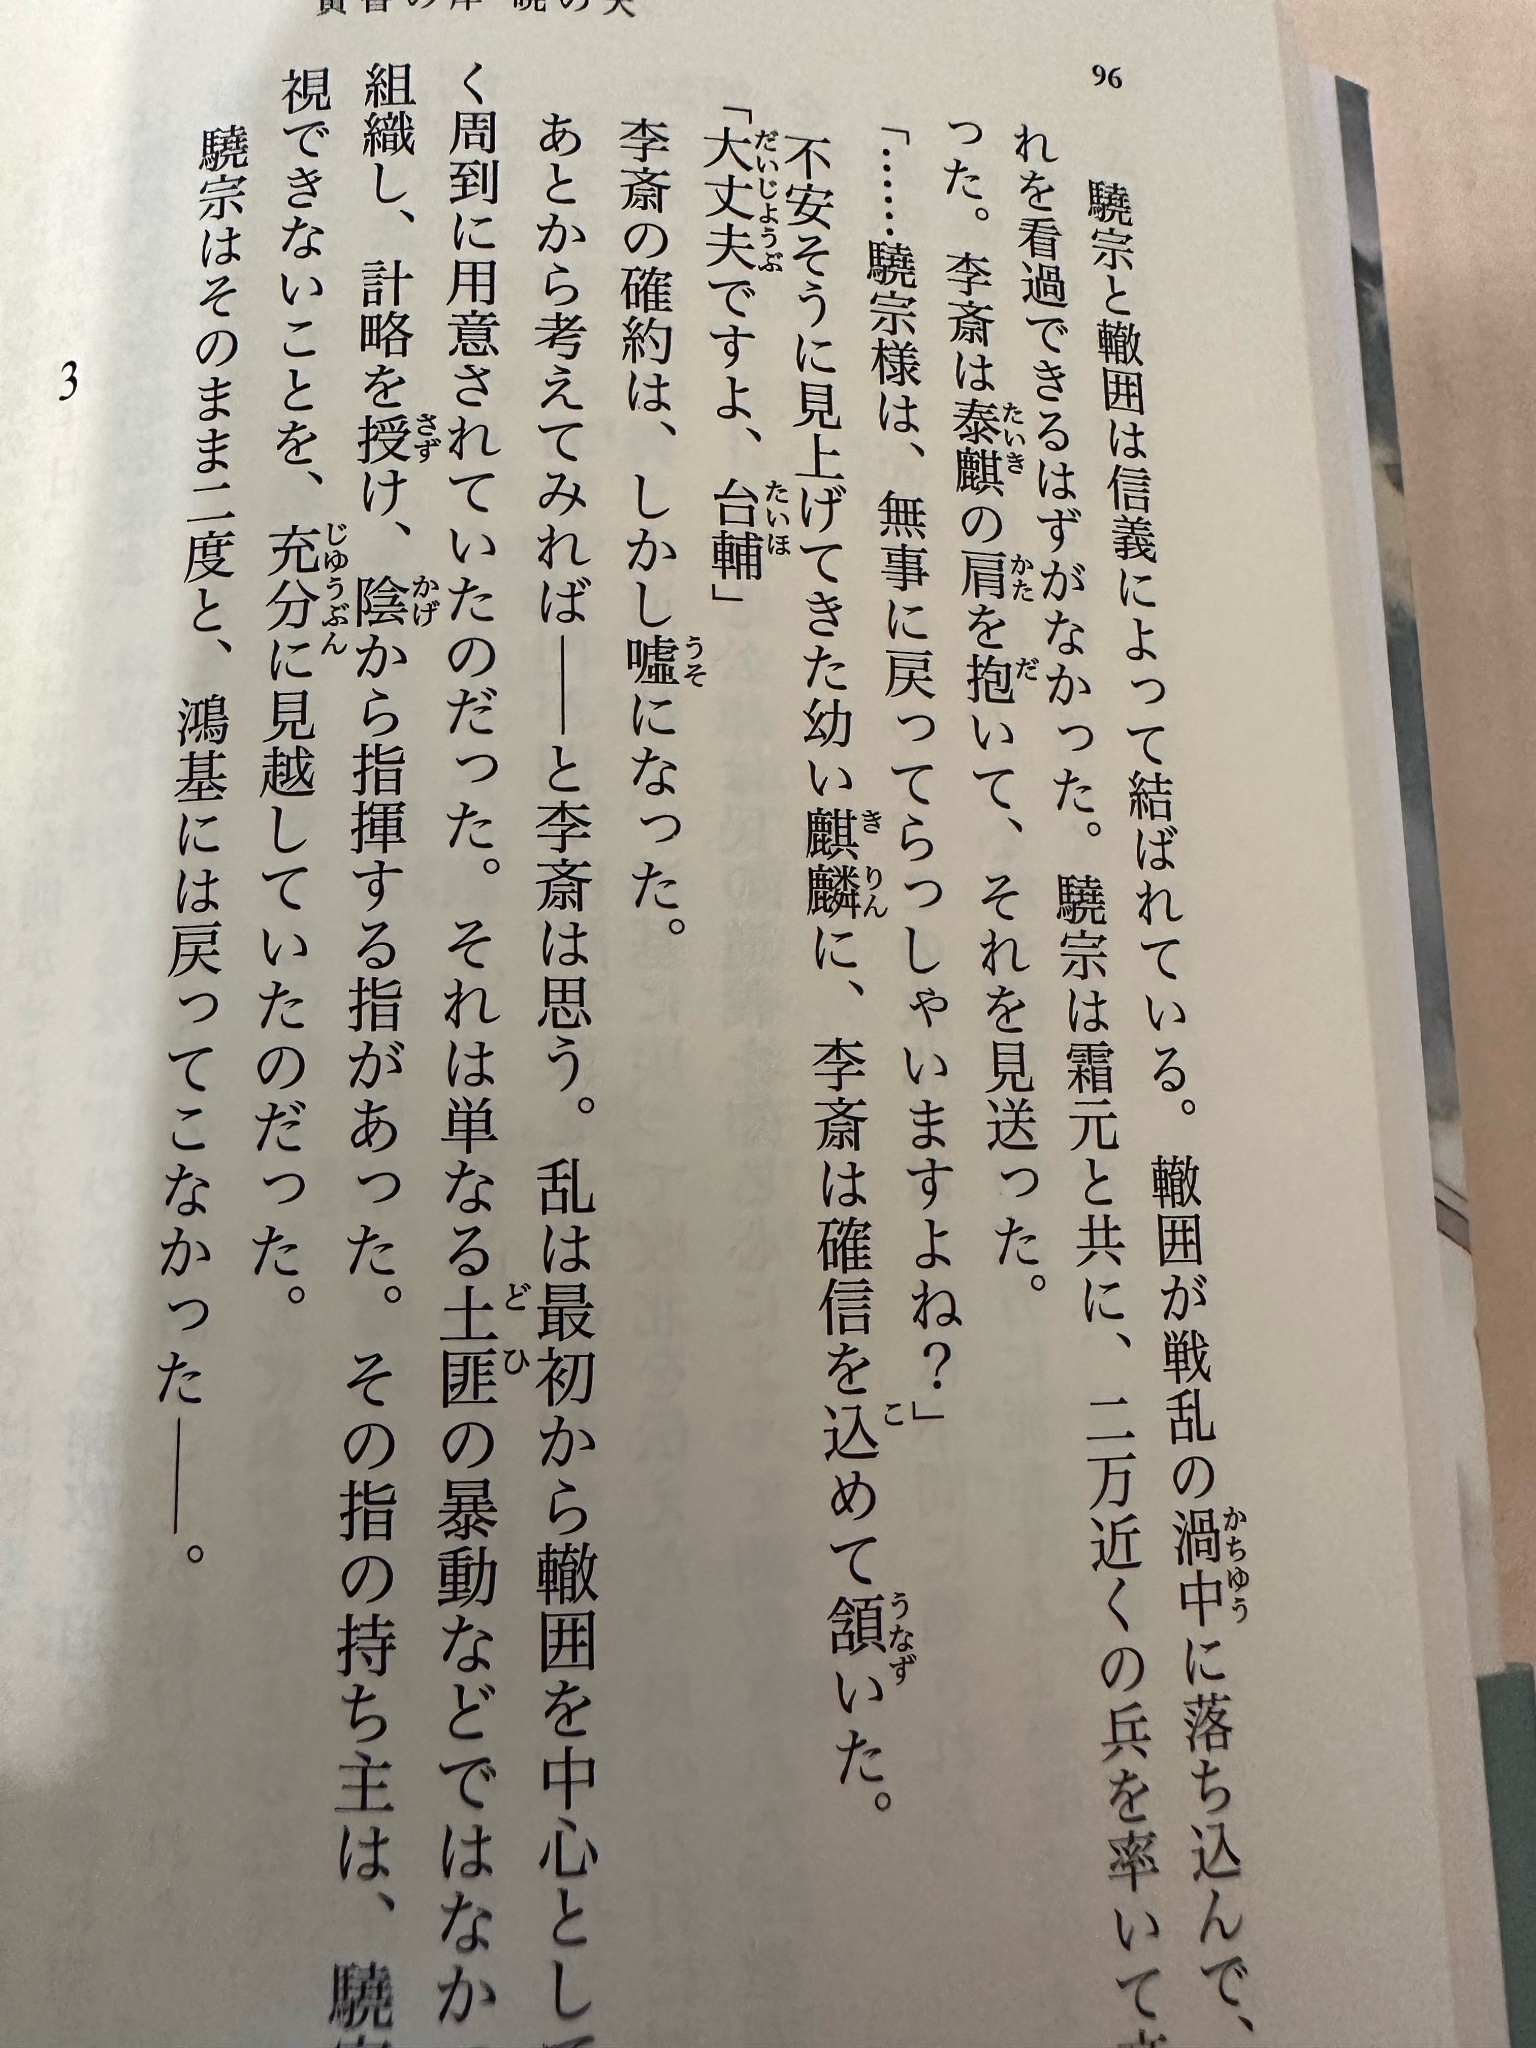 96
驍宗と轍囲は信義によって結ばれている。轍囲が戦乱の渦中に落ち込んで、
れを看過できるはずがなかった。驍宗は霜元と共に、二万近くの兵を率いて
った。李斎は泰麒の肩を抱いて、それを見送った。
「……驍宗様は、無事に戻ってらっしゃいますよね？」
不安そうに見上げてきた幼い麒麟に、李斎は確信を込めて頷いた。
「大丈夫ですよ、台輔」
李斎の確約は、しかし嘘になった。
あとから考えてみれば――と李斎は思う。乱は最初から轍囲を中心として
く周到に用意されていたのだった。それは単なる土匪の暴動などではなか
組織し、計略を授け、陰から指揮する指があった。その指の持ち主は、驍
視できないことを、充分に見越していたのだった。
驍宗はそのまま二度と、鴻基には戻ってこなかった――。
3